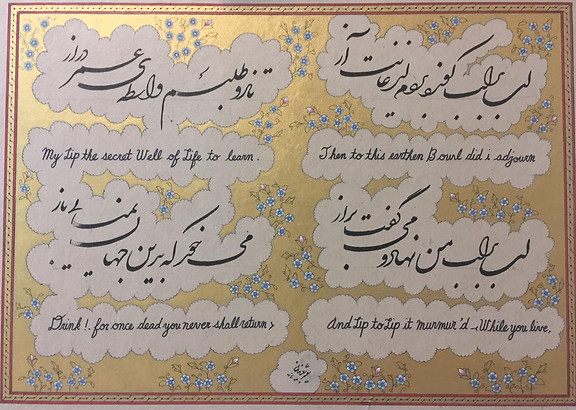 لب بر لب کوزه بردم از غایت آز
تا زو طلبم واسطهٔ عمر دراز
Then to this earthen Bowl did i adjourn
My Lip the secret Well of Life to learn.
لب بر لب من نهاد و می گفت براز
می خور که بدین جهان نمی آیی باز
And Lip to Lip it murmur'd - While you live,
Drink!. for once dead you never shall return >